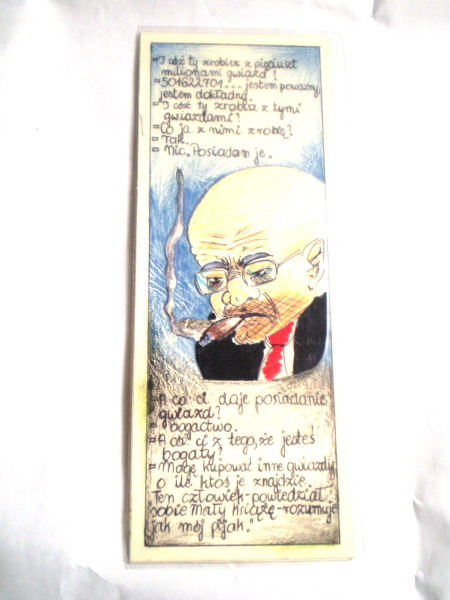 "I cóż ty zrobisz z pięciuset
milionami gwiazd!
- 501622701... jestem poważny
jestem dokładny.
- I cóż ty zrobisz z tymi
gwiazdami?
- Co ja z nimi zrobię?
- Tak.
- Nic. Posiadam je.
- A co ci daje posiadanie
gwiazd?
- Bogactwo.
- A cóż ci z tego, że jesteś
bogaty?
- Mogę kupować inne gwiazdy
o ile ktoś je znajdzie.
Ten człowiek - powiedział
sobie Mały Książę - rozumuje
jak mój pijak."